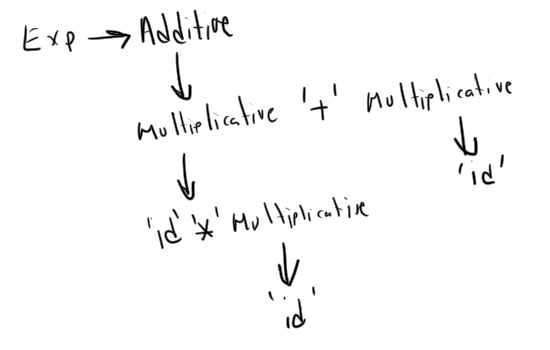 Exp → Additive
Multiplicative '+' Multiplicative
'id'
'id' '*' Multiplicative
'id'